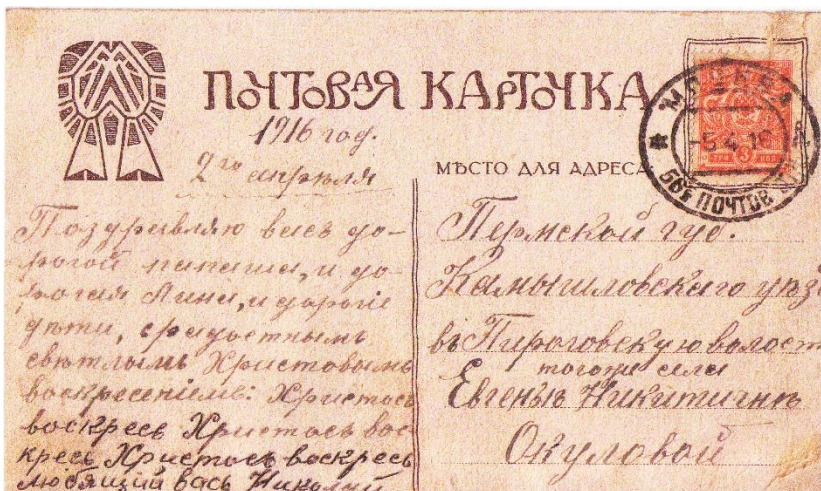 ПОЧТОВАЯ КАРТОЧКА
1916 год.
2го апрѣля
МѢСТО ДЛЯ АДРЕСА
МОСКВА
-5.4.16
ПОЧТОВ
ТРИ 3 КОП
Поздравляю васъ до-
рогой папаша, и до-
рогая Лина, и дорогіе
дѣти, срадостнымъ
свѣтлымъ Христовымъ
воскресеніемъ: Христосъ
воскресе Христосъ вос
кресе Христосъ воскресе
любящий васъ Николай
Пермской губ.
Камышловскаго уѣз
въ Пироговскую волост
тогоже села
Евгеньѣ Никитичнѣ
Окуловой